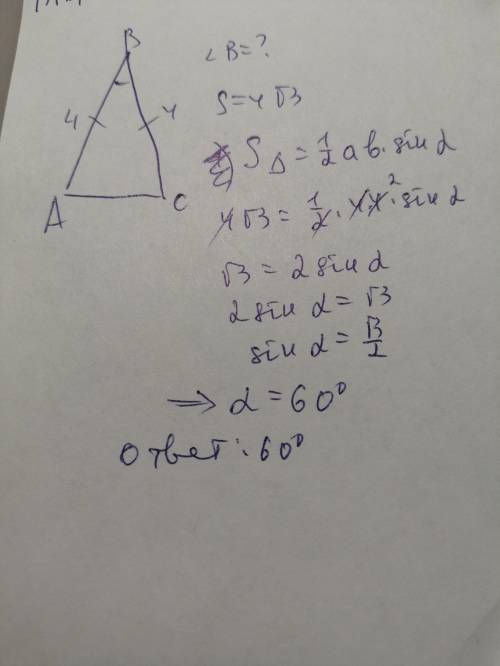 B
4 4
A C
∠B=?
S=4√3
S△=1/2 ab·sin α
4√3=1/2·4·4²·sin α
√3=2 sin α
2 sin α=√3
sin α=√3/2
⇒ α=60°
Ответ: 60°